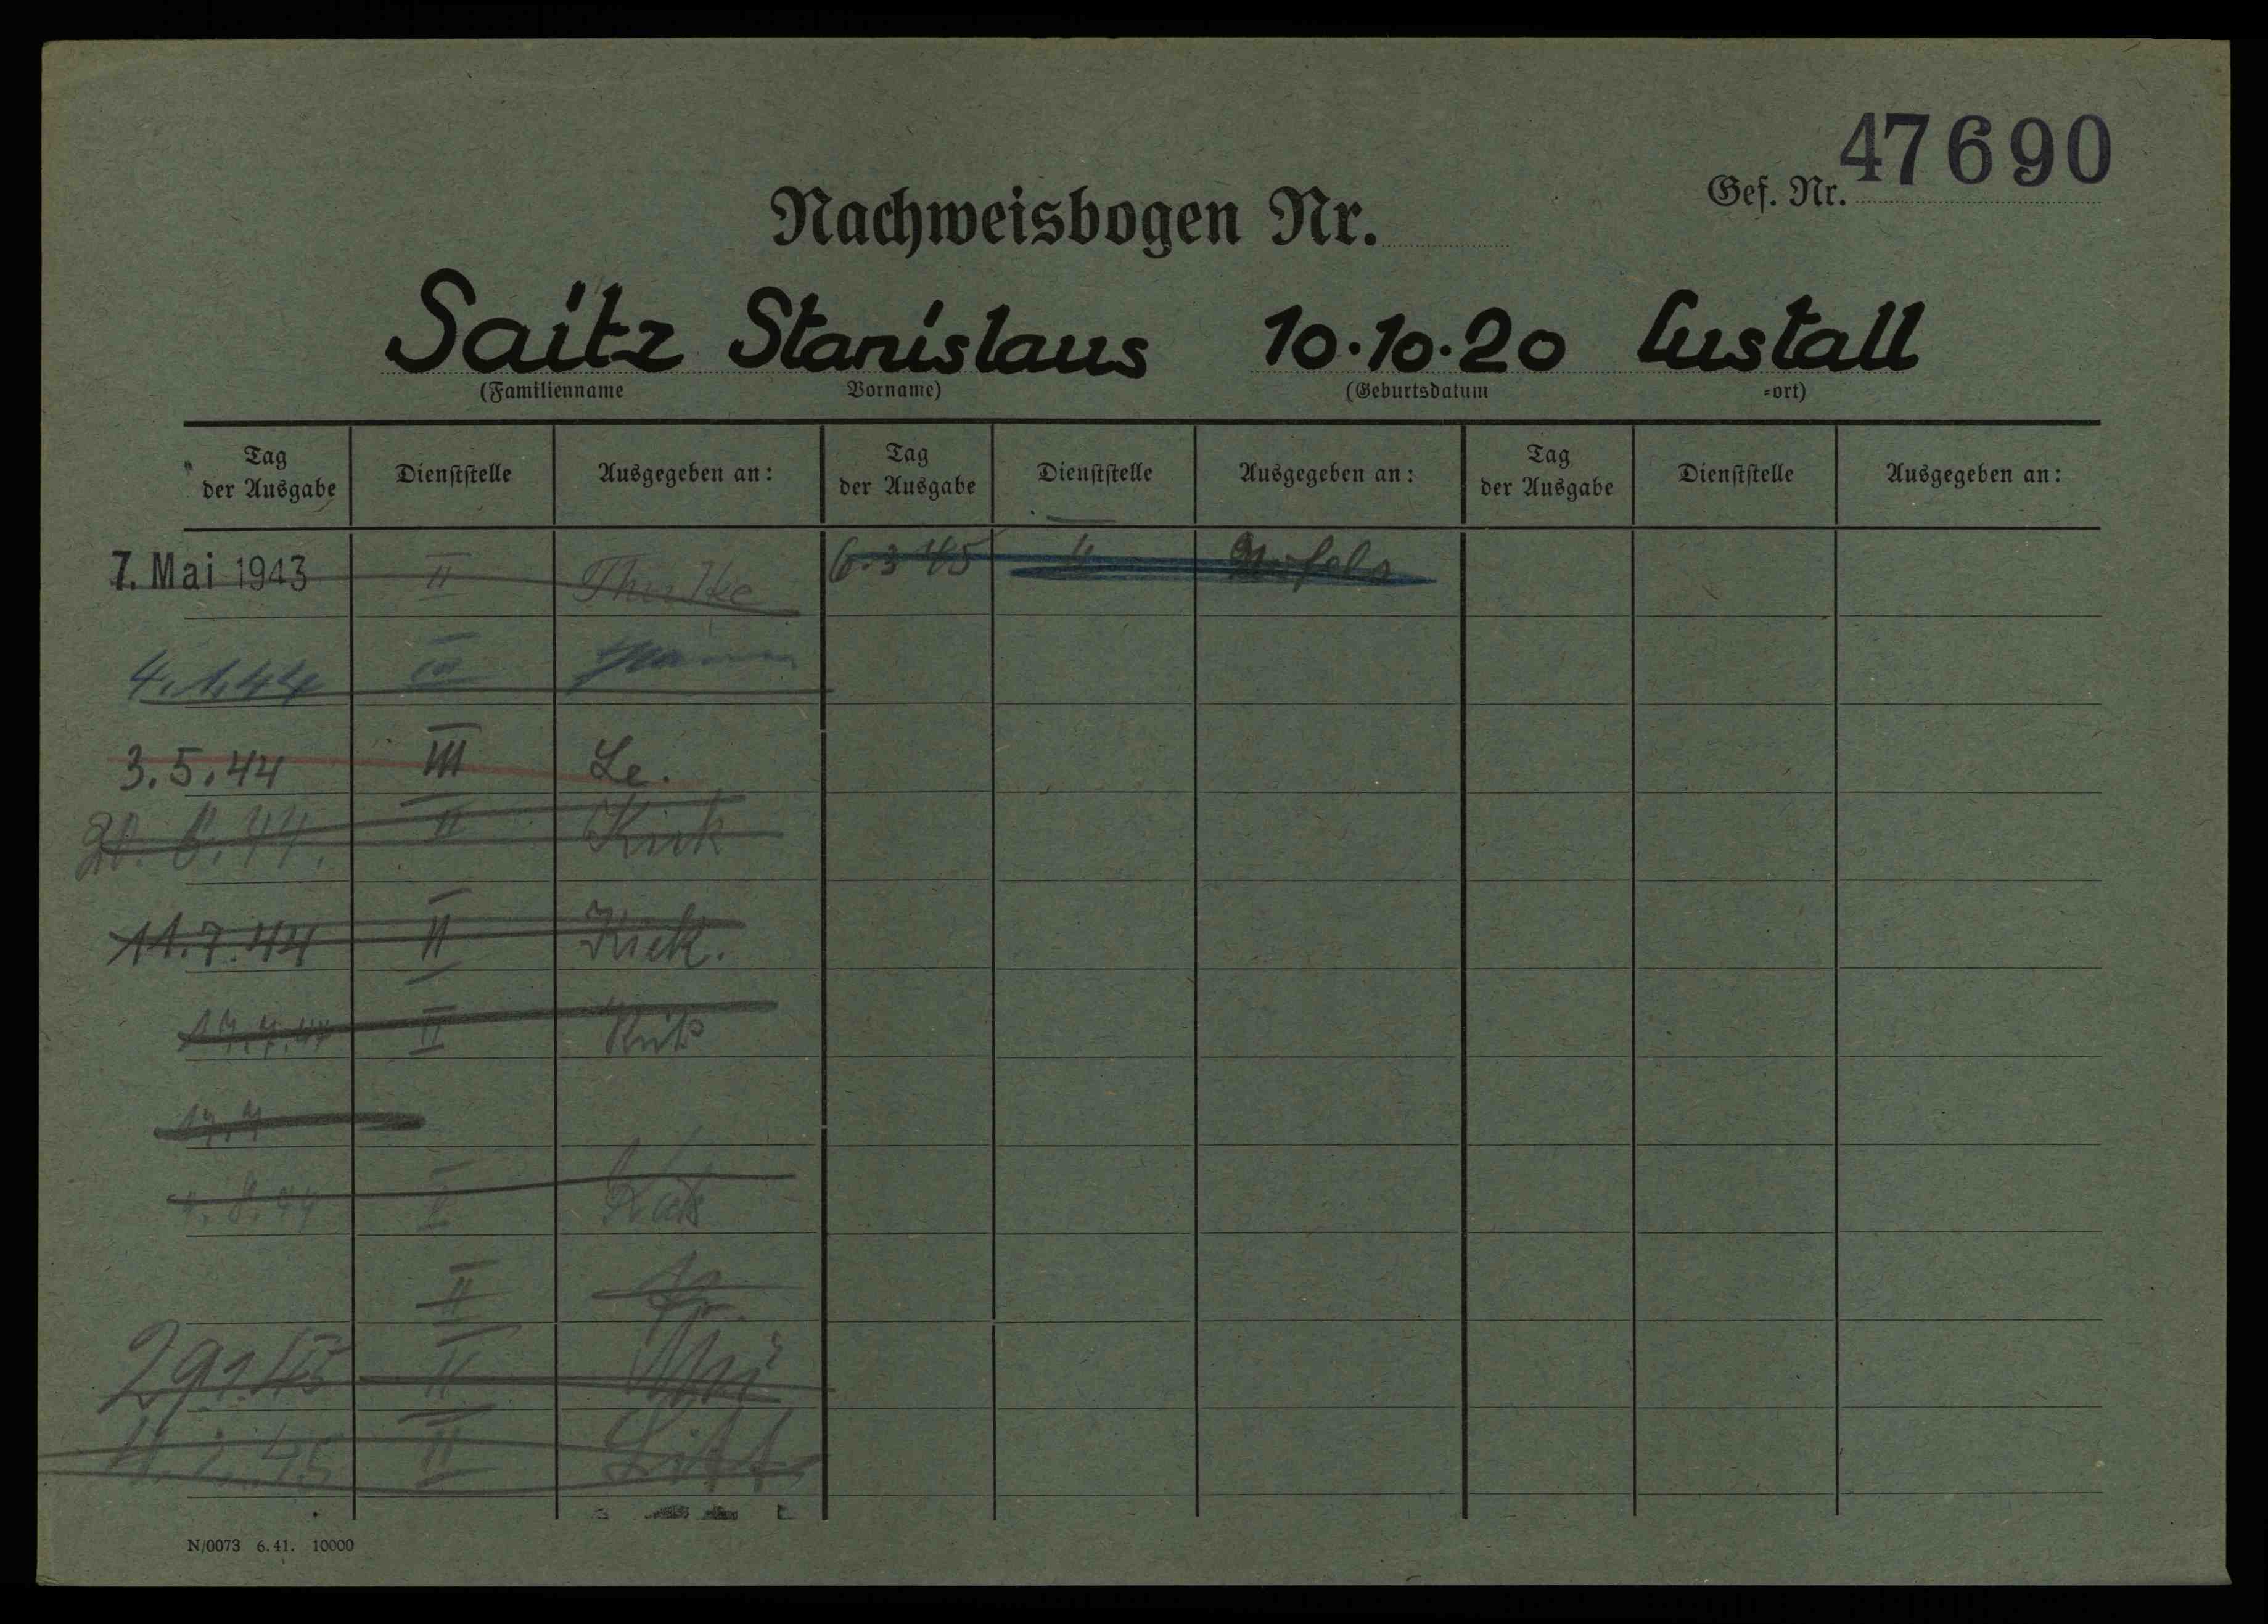 47690
Gef. Nr.
Nachweisbogen Nr.
Saitz Stanislaus 10.10.20 Lustall
(Familienname Vorname) (Geburtsdatum -ort)
Tag der Ausgabe Dienststelle Ausgegeben an: Tag der Ausgabe Dienststelle Ausgegeben an: Tag der Ausgabe Dienststelle Ausgegeben an:
7. Mai 1943 II 6.3.45 II
4.1.44 III
3.5.44 III Le.
6.44. II
11.7.44 II Kick.
17.7.44 II
17.7
8.44 II
II
29.1.45 II Mü
2.45 II
N/0073 6.41. 10000